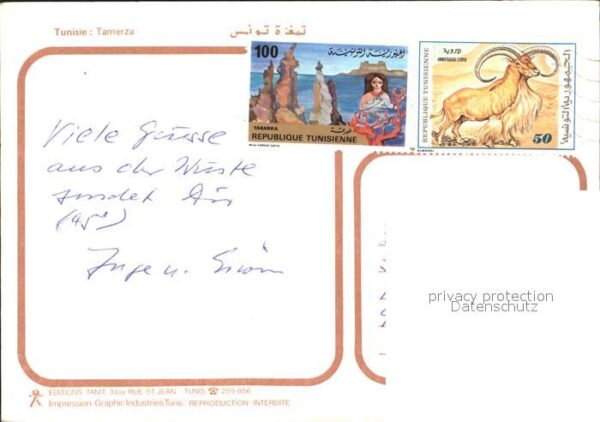 Tunisie : Tamerza
تمغزة تونس
100
الجمهورية التونسية
TABARKA
طبرقة
REPUBLIQUE TUNISIENNE
REPUBLIQUE TUNISIENNE
الأروية
AMMOTRAGUS LERVIA
50
الجمهورية التونسية
Viele Grüsse
aus der Wüste
sendet Dir
(45°)
Inge u.
privacy protection
Datenschutz
EDITIONS TANIT, 3 bis RUE ST JEAN TUNIS ☎ 255 856
Impression Graphic Industries Tunis REPRODUCTION INTERDITE